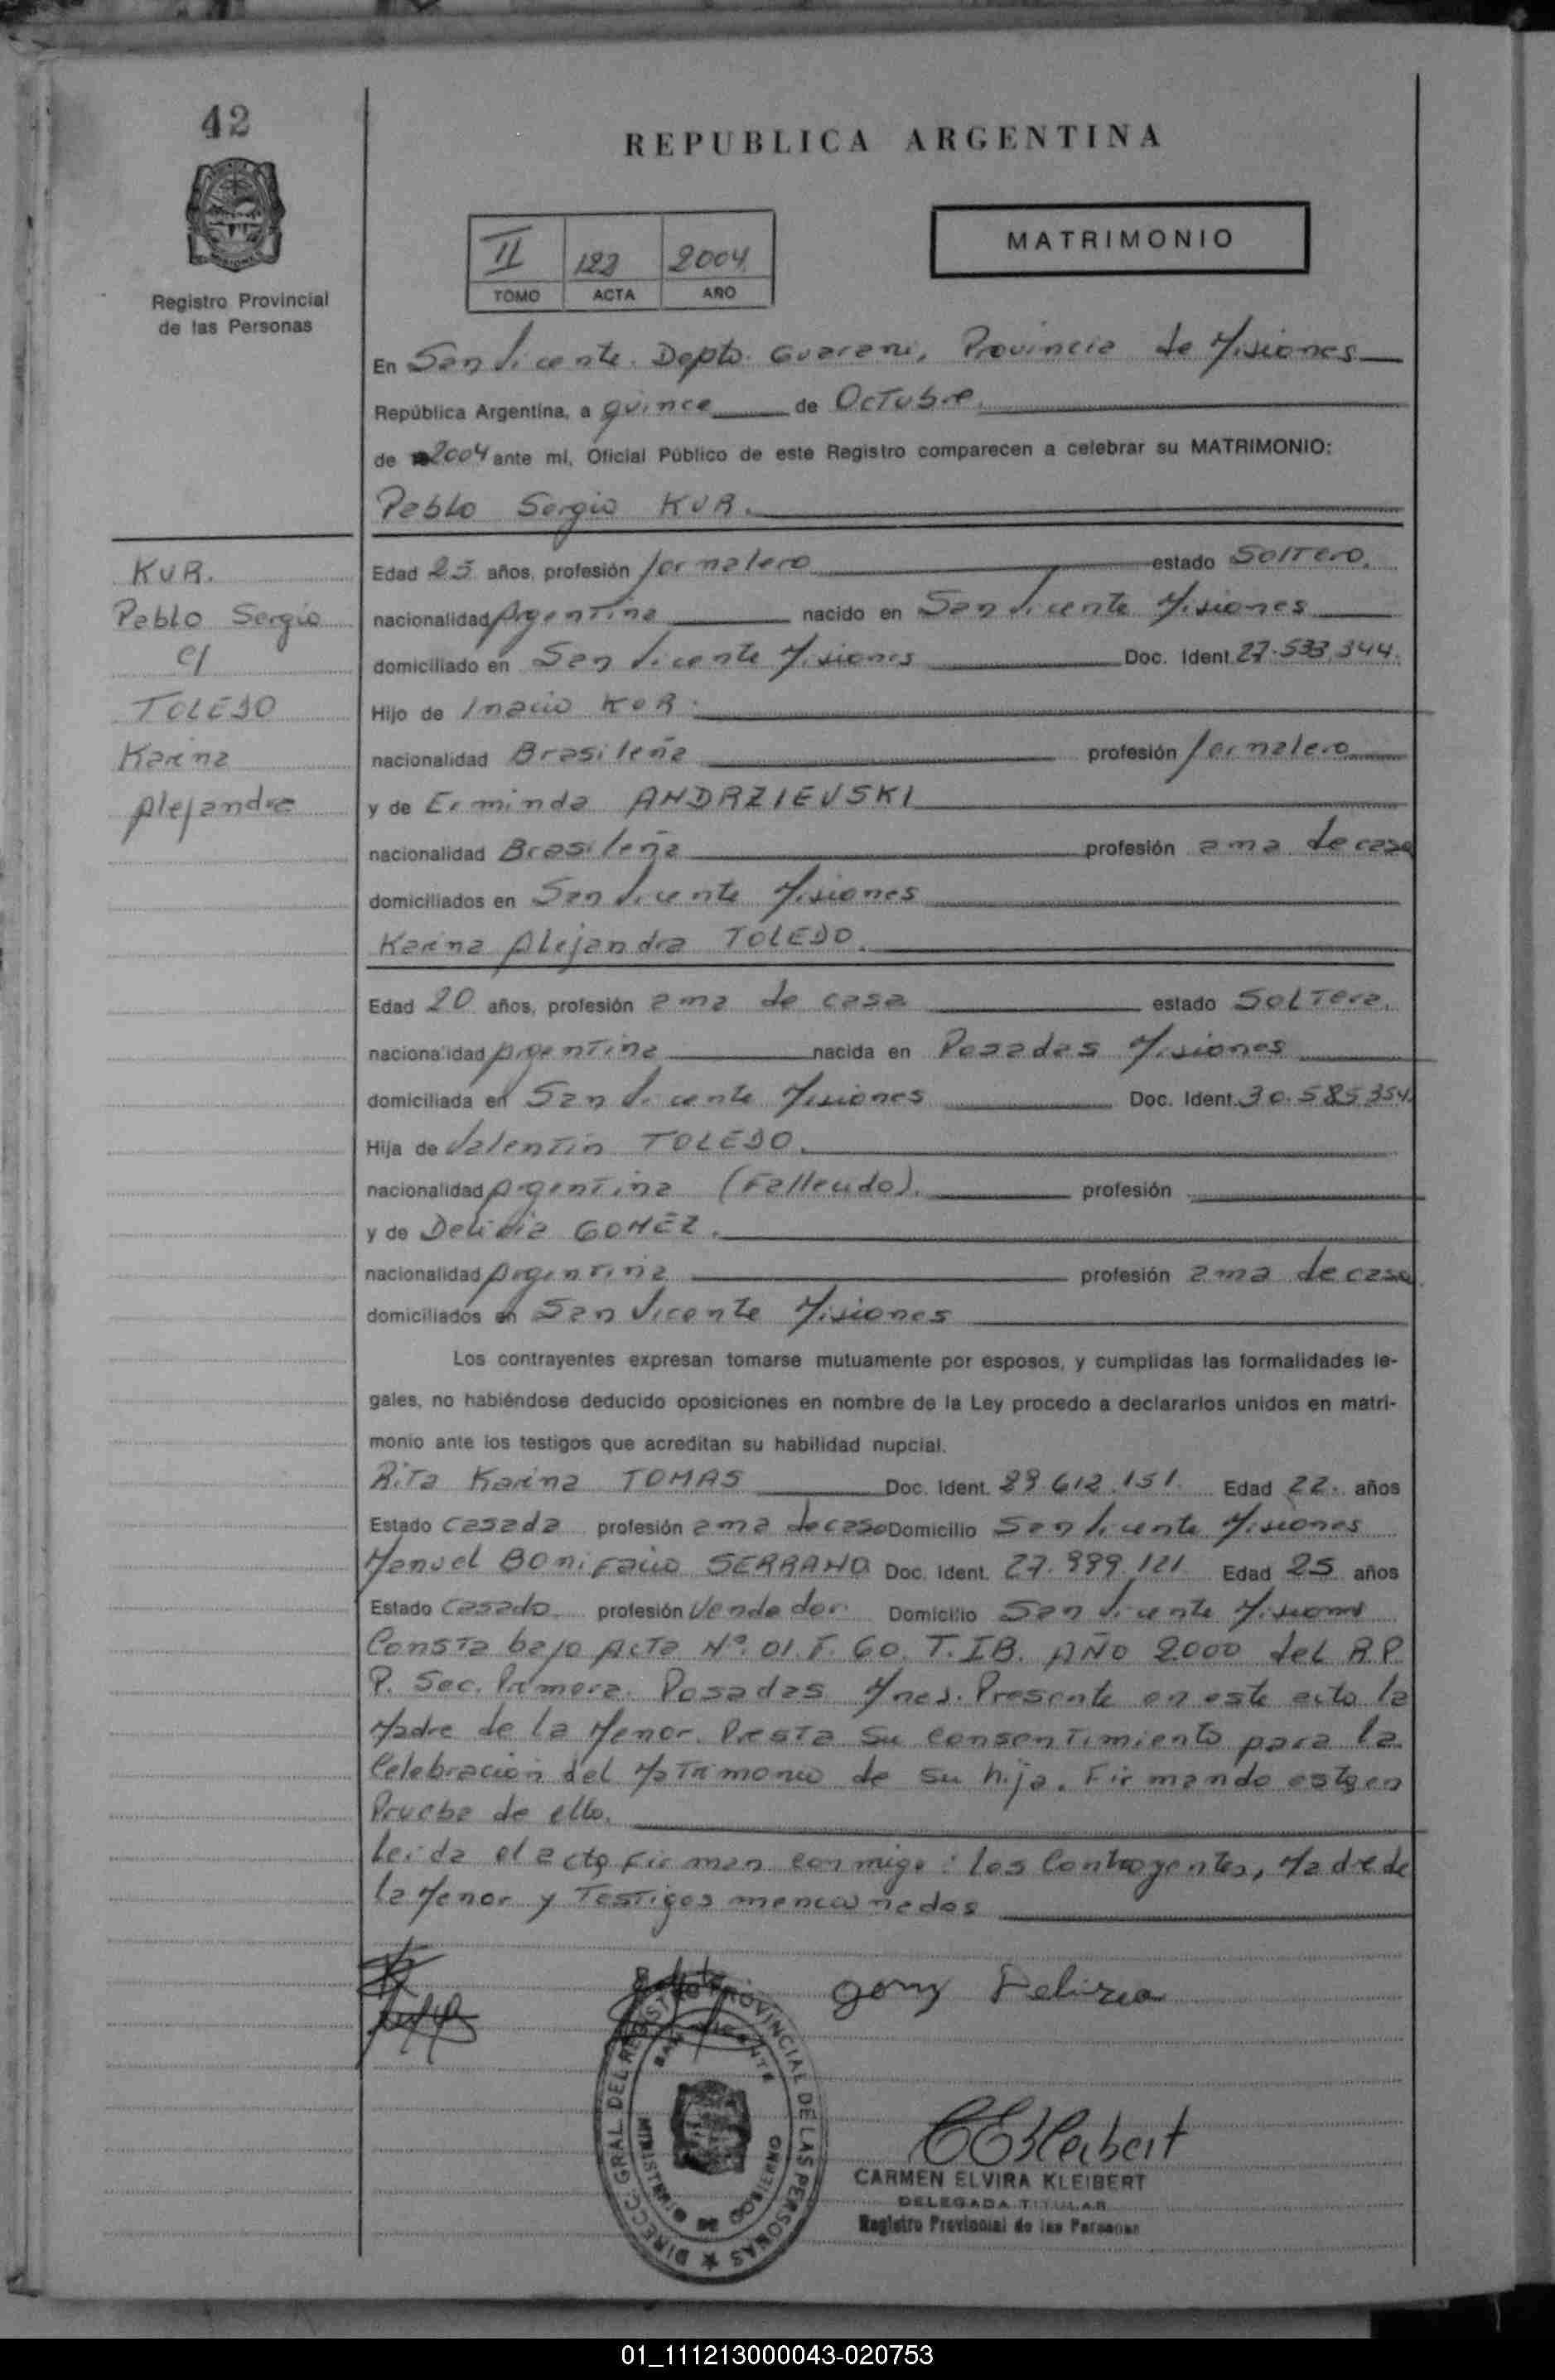 42
REPUBLICA ARGENTINA
II 122 2004
TOMO ACTA AÑO
MATRIMONIO
Registro Provincial
de las Personas
En San Vicente. Depto. Guarani, Provincia de Misiones
República Argentina, a quince de Octubre.
de 2004 ante mí, Oficial Público de este Registro comparecen a celebrar su MATRIMONIO:
Pablo Sergio KUR.
KUR.
Pablo Sergio
c/
TOLEDO
Karina
Alejandra
Edad 25 años, profesión Jornalero estado Soltero.
nacionalidad Argentina nacido en San Vicente Misiones
domiciliado en San Vicente Misiones Doc. Ident. 27.533.344.
Hijo de Inacio KUR.
nacionalidad Brasileña profesión Jornalero
y de Erminda ANDRZIEVSKI
nacionalidad Brasileña profesión ama de casa
domiciliados en San Vicente Misiones
Karina Alejandra TOLEDO.
Edad 20 años, profesión ama de casa estado Soltera.
nacionalidad Argentina nacida en Posadas Misiones
domiciliada en San Vicente Misiones Doc. Ident. 30.585.354.
Hija de Valentin TOLEDO.
nacionalidad Argentina (Fallecido). profesión
y de Delicia GOMEZ.
nacionalidad Argentina profesión ama de casa
domiciliados en San Vicente Misiones
Los contrayentes expresan tomarse mutuamente por esposos, y cumplidas las formalidades le-
gales, no habiéndose deducido oposiciones en nombre de la Ley procedo a declararlos unidos en matri-
monio ante los testigos que acreditan su habilidad nupcial.
Rita Karina TOMAS Doc. Ident. 29.612.151. Edad 22. años
Estado Casada profesión ama de casa Domicilio San Vicente Misiones
Manuel Bonifacio SERRANO Doc. Ident. 27.999.121 Edad 25 años
Estado Casado profesión Vendedor. Domicilio San Vicente Misiones
Consta bajo Acta Nº. 01. F. 60. T. IB. AÑO 2000 del R.P.
P. Sec. Primera. Posadas Mnes. Presente en este acto la
Madre de la Menor. Presta su consentimiento para la
Celebración del Matrimonio de su hija. Firmando esta en
Prueba de ello.
Leida el acta firman conmigo: los Contrayentes, Madre de
la Menor y Testigos mencionados
Gomz Delicia
DIRECC. GRAL. DEL REGISTRO PROVINCIAL DE LAS PERSONAS
SAN VICENTE
MINISTERIO DE GOBIERNO
CARMEN ELVIRA KLEIBERT
DELEGADA TITULAR
Registro Provincial de las Personas
01_111213000043-020753